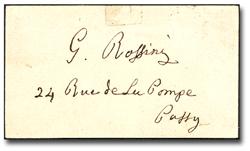 G. Rossini
24 Rue de La Pompe
Passy